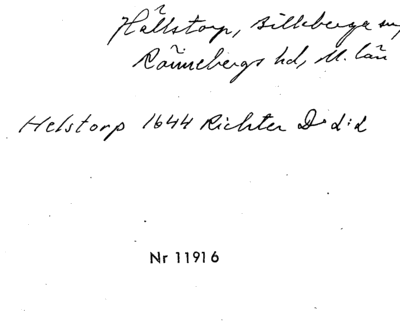 Hällstorp, Billeberga sn,
Rönnebergs hd, M. län
Helstorp 1644 Richter D:d:d
Nr 11916